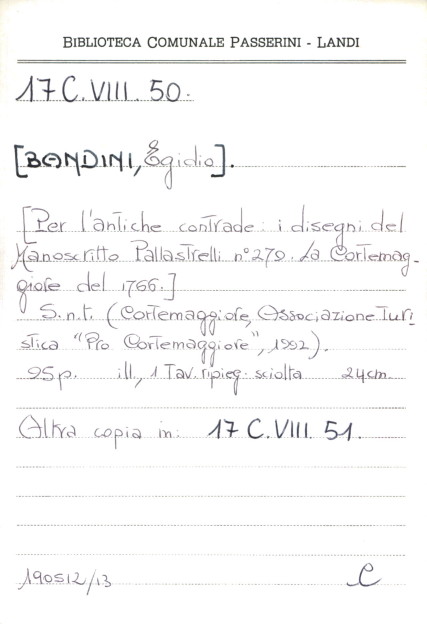 BIBLIOTECA COMUNALE PASSERINI - LANDI
17 C. VIII. 50.
[BANDINI, Egidio].
[Per l'antiche contrade: i disegni del
Manoscritto Pallastrelli n° 270. La Cortemag-
giore del 1766.]
S.n.t. (Cortemaggiore, Associazione Turi
stica "Pro Cortemaggiore", 1992).
95 p. ill., 1 Tav. ripieg. sciolta 24 cm.
Altra copia in: 17 C. VIII. 51.
190512/13
C